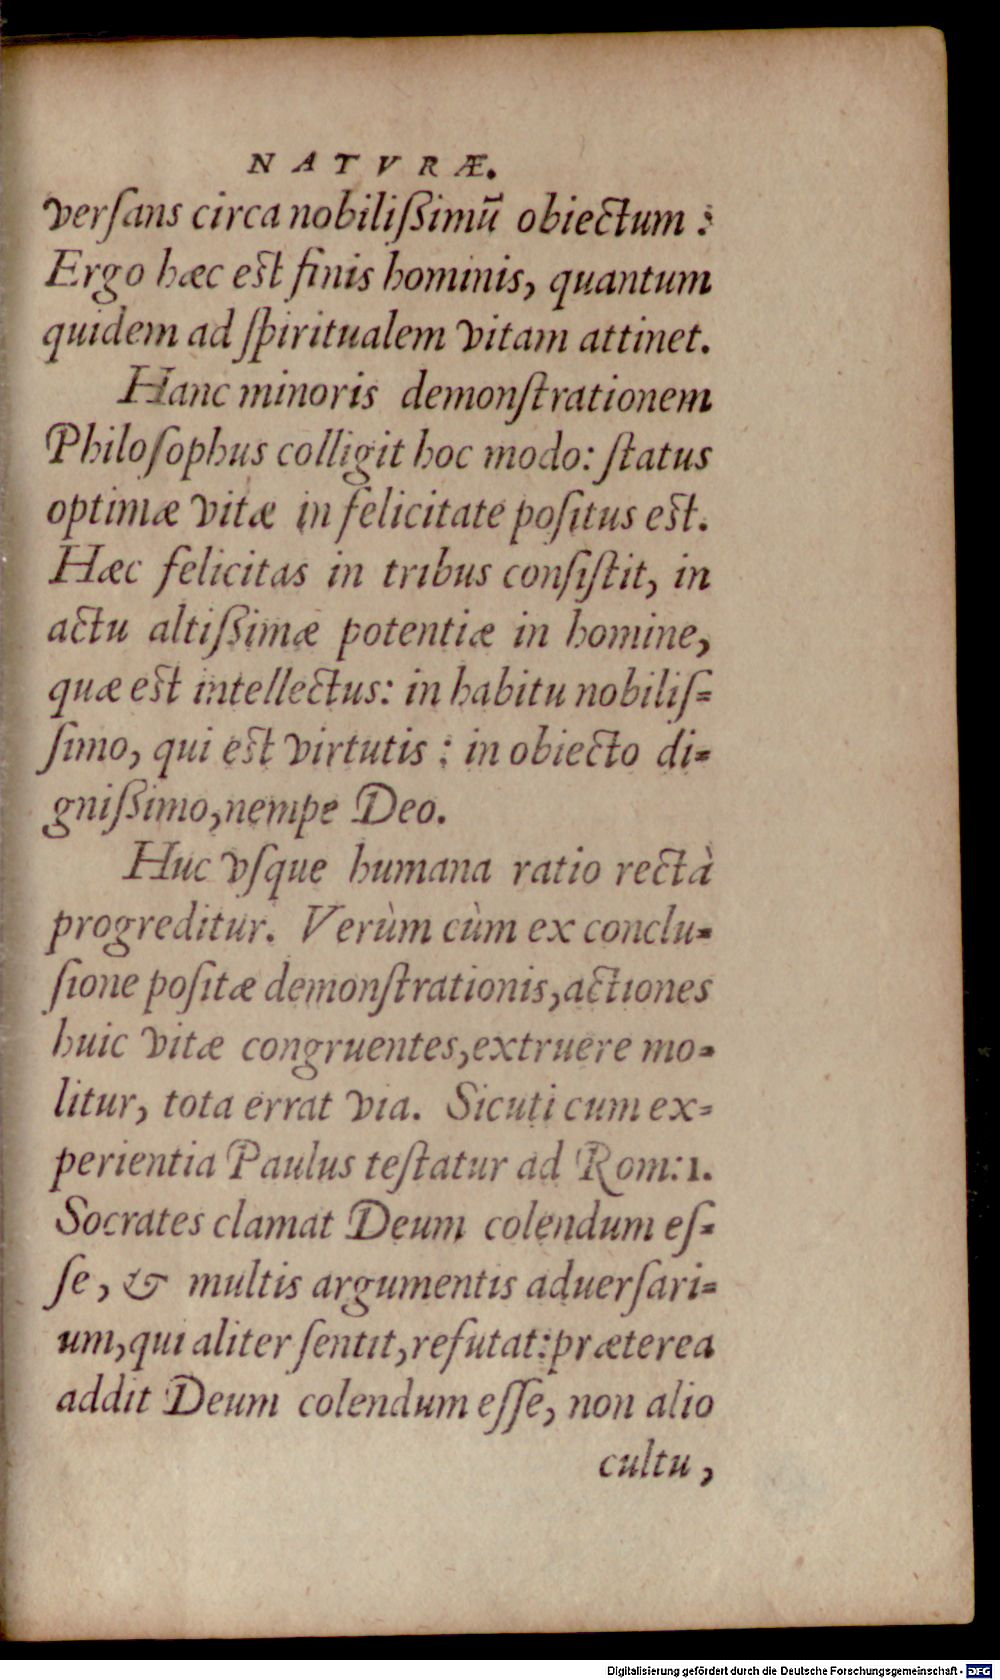 NATVRÆ.
verſans circa nobiliſsimū obiectum :
Ergo hæc est finis hominis, quantum
quidem ad ſpiritualem vitam attinet.
Hanc minoris demonſtrationem
Philoſophus colligit hoc modo: ſtatus
optimæ vitæ in felicitate poſitus est.
Hæc felicitas in tribus conſiſtit, in
actu altiſsimæ potentiæ in homine,
quæ est intellectus: in habitu nobiliſ=
ſimo, qui est virtutis : in obiecto di=
gniſsimo, nempe Deo.
Huc vſque humana ratio rectà
progreditur. Verùm cùm ex conclu=
ſione poſitæ demonſtrationis, actiones
huic vitæ congruentes, extruere mo=
litur, tota errat via. Sicuti cum ex=
perientia Paulus teſtatur ad Rom: 1.
Socrates clamat Deum colendum eſ=
ſe, & multis argumentis aduerſari=
um, qui aliter ſentit, refutat: præterea
addit Deum colendum eſſe, non alio
cultu,
Digitalisierung gefördert durch die Deutsche Forschungsgemeinschaft - DFG